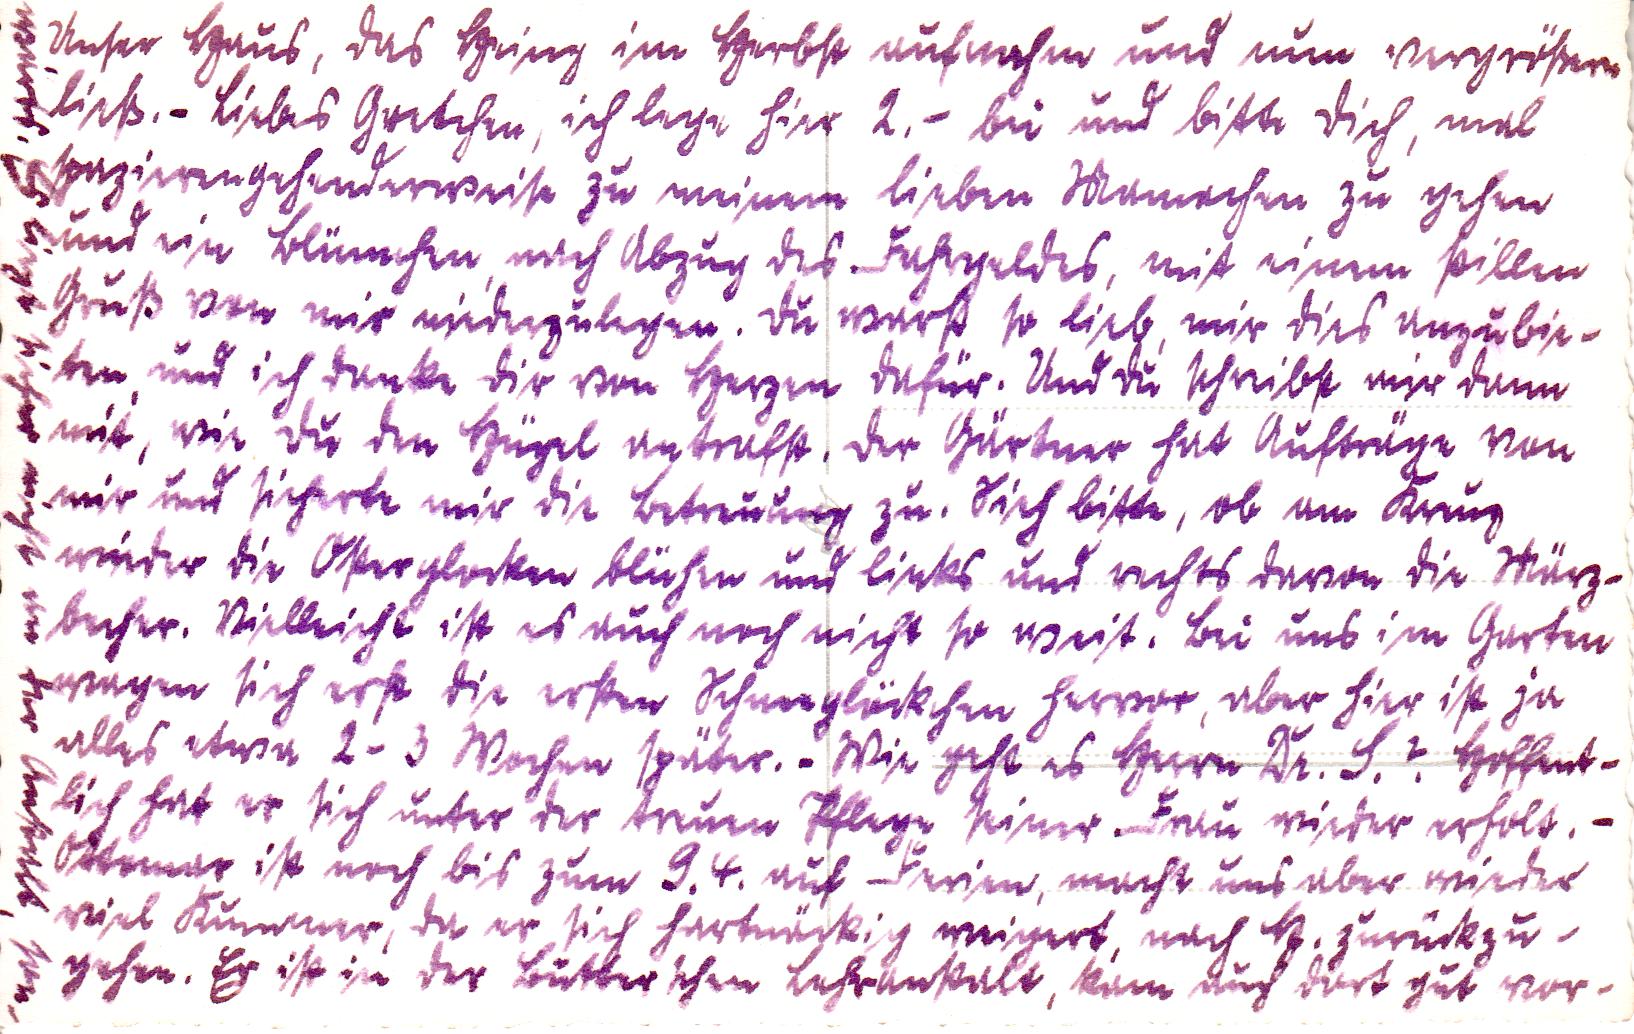 Unser Haus, das Heinz im Herbst aufnahm und nun vergrößern
ließ. - Liebes Gretchen, ich lege hier 2.- bei und bitte Dich, mal
spazierengehenderweise zu meinem lieben Mamachen zu gehen
und ein Blümchen, nach Abzug des Fahrgeldes, mit einem stillen
Gruß von mir niederzulegen. Du warst so lieb, mir dies anzubie-
ten, und ich danke Dir von Herzen dafür. Und Du schreibst mir dann
mit, wie Du den Hügel antrafst. Der Gärtner hat Aufträge von
mir und sicherte mir die Betreuung zu. Sieh bitte, ob am Kreuz
wieder die Osterglocken blühen und links und rechts davon die März-
becher. Vielleicht ist es auch noch nicht so weit. Bei uns im Garten
wagen sich erst die ersten Schneeglöckchen hervor, aber hier ist ja
alles etwa 2-3 Wochen später. - Wie geht es Herrn Dr. S.? Hoffent-
lich hat er sich unter der treuen Pflege seiner Frau wieder erholt. -
Ottomar ist noch bis zum 9.4. auf Ferien, macht uns aber wieder
viel Kummer, da er sich hartnäckig weigert, nach H. zurückzu-
gehen. Er ist in der Butter'schen Lehranstalt, kam auch dort gut vor-